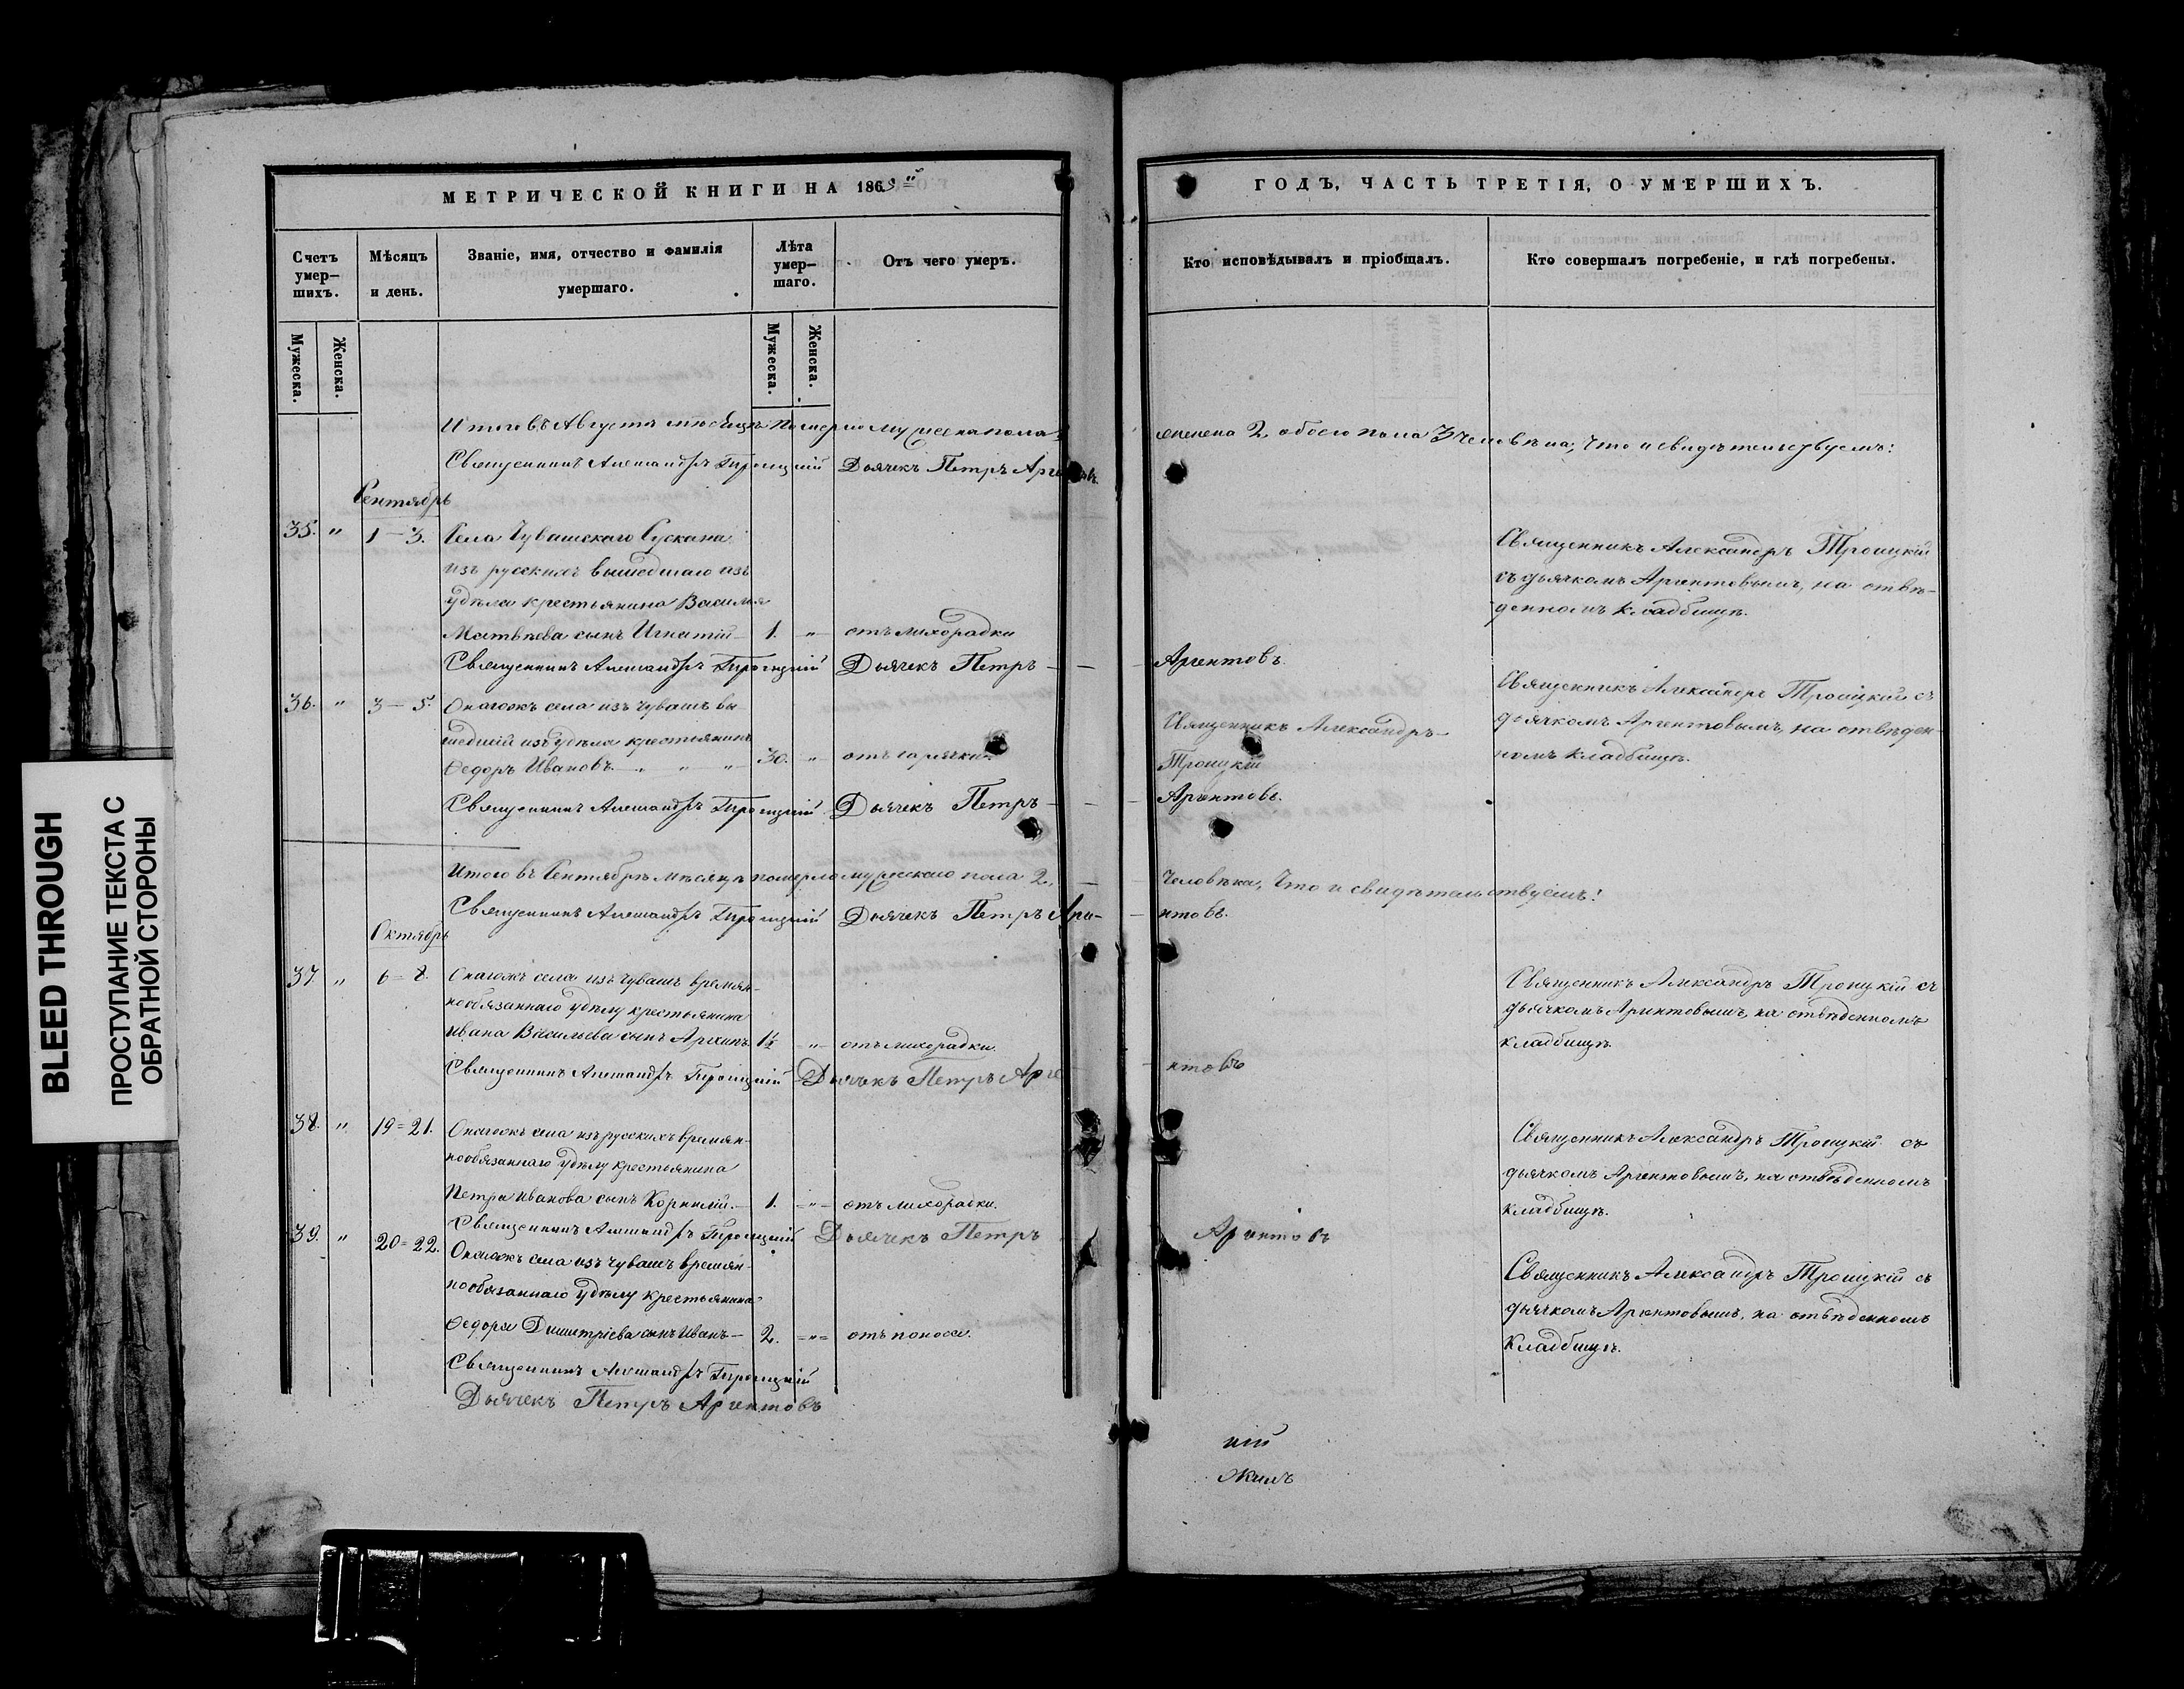 BLEED THROUGH
ПРОСТУПАНИЕ ТЕКСТА С
ОБРАТНОЙ СТОРОНЫ
МЕТРИЧЕСКОЙ КНИГИ НА 186
Счетъ умер-шихъ.
Мужеска.
Женска.
Мѣсяцъ и день.
Званіе, имя, отчество и фамилія умершаго.
Лѣта умер-шаго.
Мужеска.
Женска.
Отъ чего умеръ.
Итого въ Августѣ мѣсяцѣ померло мужеска пола
Священникъ Александръ Троицкій Дьячекъ Петръ
Сентябрь
35. " 1-3. Села Чувашскаго Сускана
изъ русскихъ вышедшаго изъ
удѣла крестьянина Василья
Матвѣева сынъ Игнатій - 1. " отъ лихорадки
Священникъ Александръ Троицкій Дьячекъ Петръ -
36. " 3-5. Онагожъ села изъ чувашъ вы-
шедшій изъ удѣла крестьянинъ
Ѳедоръ Ивановъ. " " " 30. " отъ горячки.
Священникъ Александръ Троицкій Дьячекъ Петръ -
Итого въ Сентябрѣ мѣсяцѣ померло мужескаго пола 2.
Священникъ Александръ Троицкій Дьячекъ Петръ Арге-
Октябрь
37. " 6=8. Онагожъ села изъ чувашъ времян-
нообязаннаго удѣлу крестьянина
Ивана Васильева сынъ Архипъ 1½ " отъ лихорадки.
Священникъ Александръ Троицкій Дьячекъ Петръ Арге
38. " 19=21. Онагожъ села изъ русскихъ времян-
нообязаннаго удѣлу крестьянина
Петра Иванова сынъ Корнилій. - 1. " отъ лихорадки.
Священникъ Александръ Троицкій Дьячекъ Петръ
39. " 20=22. Онагожъ села изъ чувашъ времян-
нообязаннаго удѣлу крестьянина
Ѳедора Димитріева сынъ Иванъ - 2. " отъ поноса.
Священникъ Александръ Троицкій
Дьячекъ Петръ Аргентовъ
ГОДЪ, ЧАСТЬ ТРЕТІЯ, О УМЕРШИХЪ.
Кто исповѣдывалъ и пріобщалъ.
Кто совершалъ погребеніе, и гдѣ погребены.
2, обоего пола 3 человѣка, что и свидѣтельствуемъ:
Священникъ Александръ Троицкій
съ дьячкомъ Аргентовымъ, на отвѣ-
денномъ кладбищѣ.
Аргентовъ.
Священникъ Александръ Троицкій съ
дьячкомъ Аргентовымъ, на отвѣден-
номъ кладбищѣ.
Священникъ Александръ
Троицкій
Аргентовъ.
человѣка, что и свидѣтельствуемъ!
нтовъ.
Священникъ Александръ Троицкій съ
дьячкомъ Аргентовымъ, на отвѣденномъ
кладбищѣ.
нтовъ
Священникъ Александръ Троицкій съ
дьячкомъ Аргентовымъ, на отвѣденномъ
кладбищѣ.
Аргентовъ
Священникъ Александръ Троицкій съ
дьячкомъ Аргентовымъ, на отвѣденномъ
Кладбищѣ.
кій